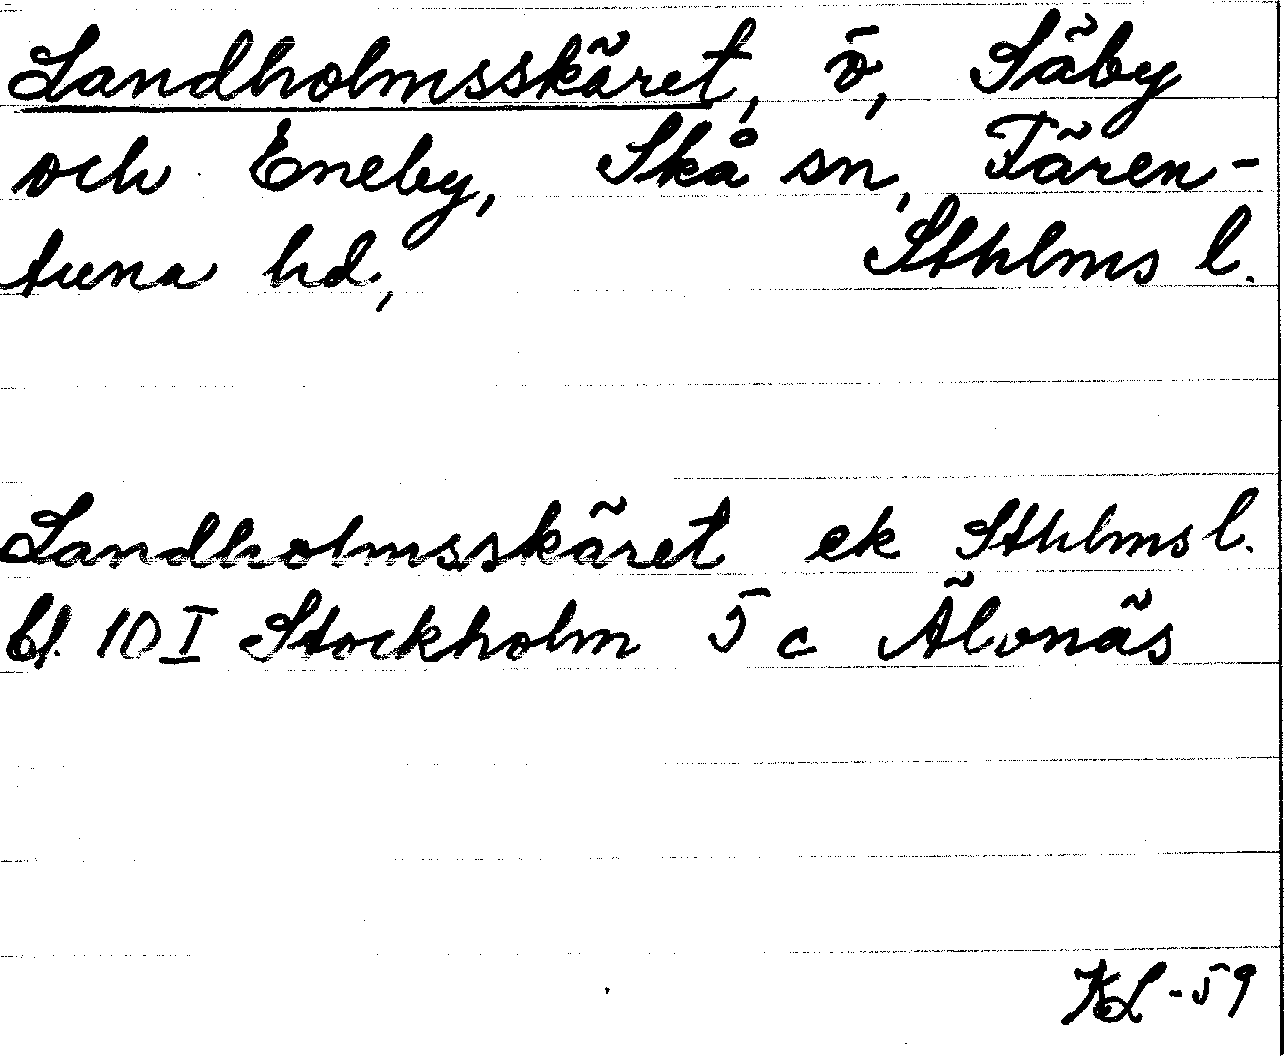 Landholmsskäret, ö, Säby
och Eneby, Skå sn, Fären-
tuna hd, Sthlms l.
Landholmsskäret ek Sthlms l.
bl. 10 I Stockholm 5 c Älvnäs
KL -59